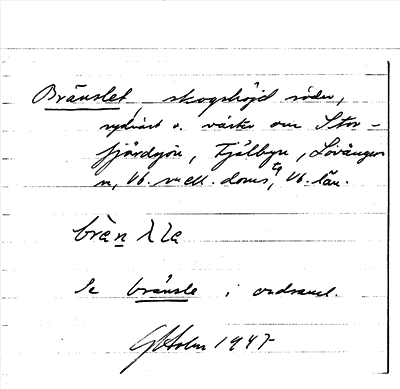 Bränslet, skogshöjd söder,
sydväst o. väster om Stor-
fjärdgön, Fjälbyn, Lövångers
sn, Vb. mell. doms, Vb. län.
brän λ la
Se bränsle i ordsaml.
G Holm 1947